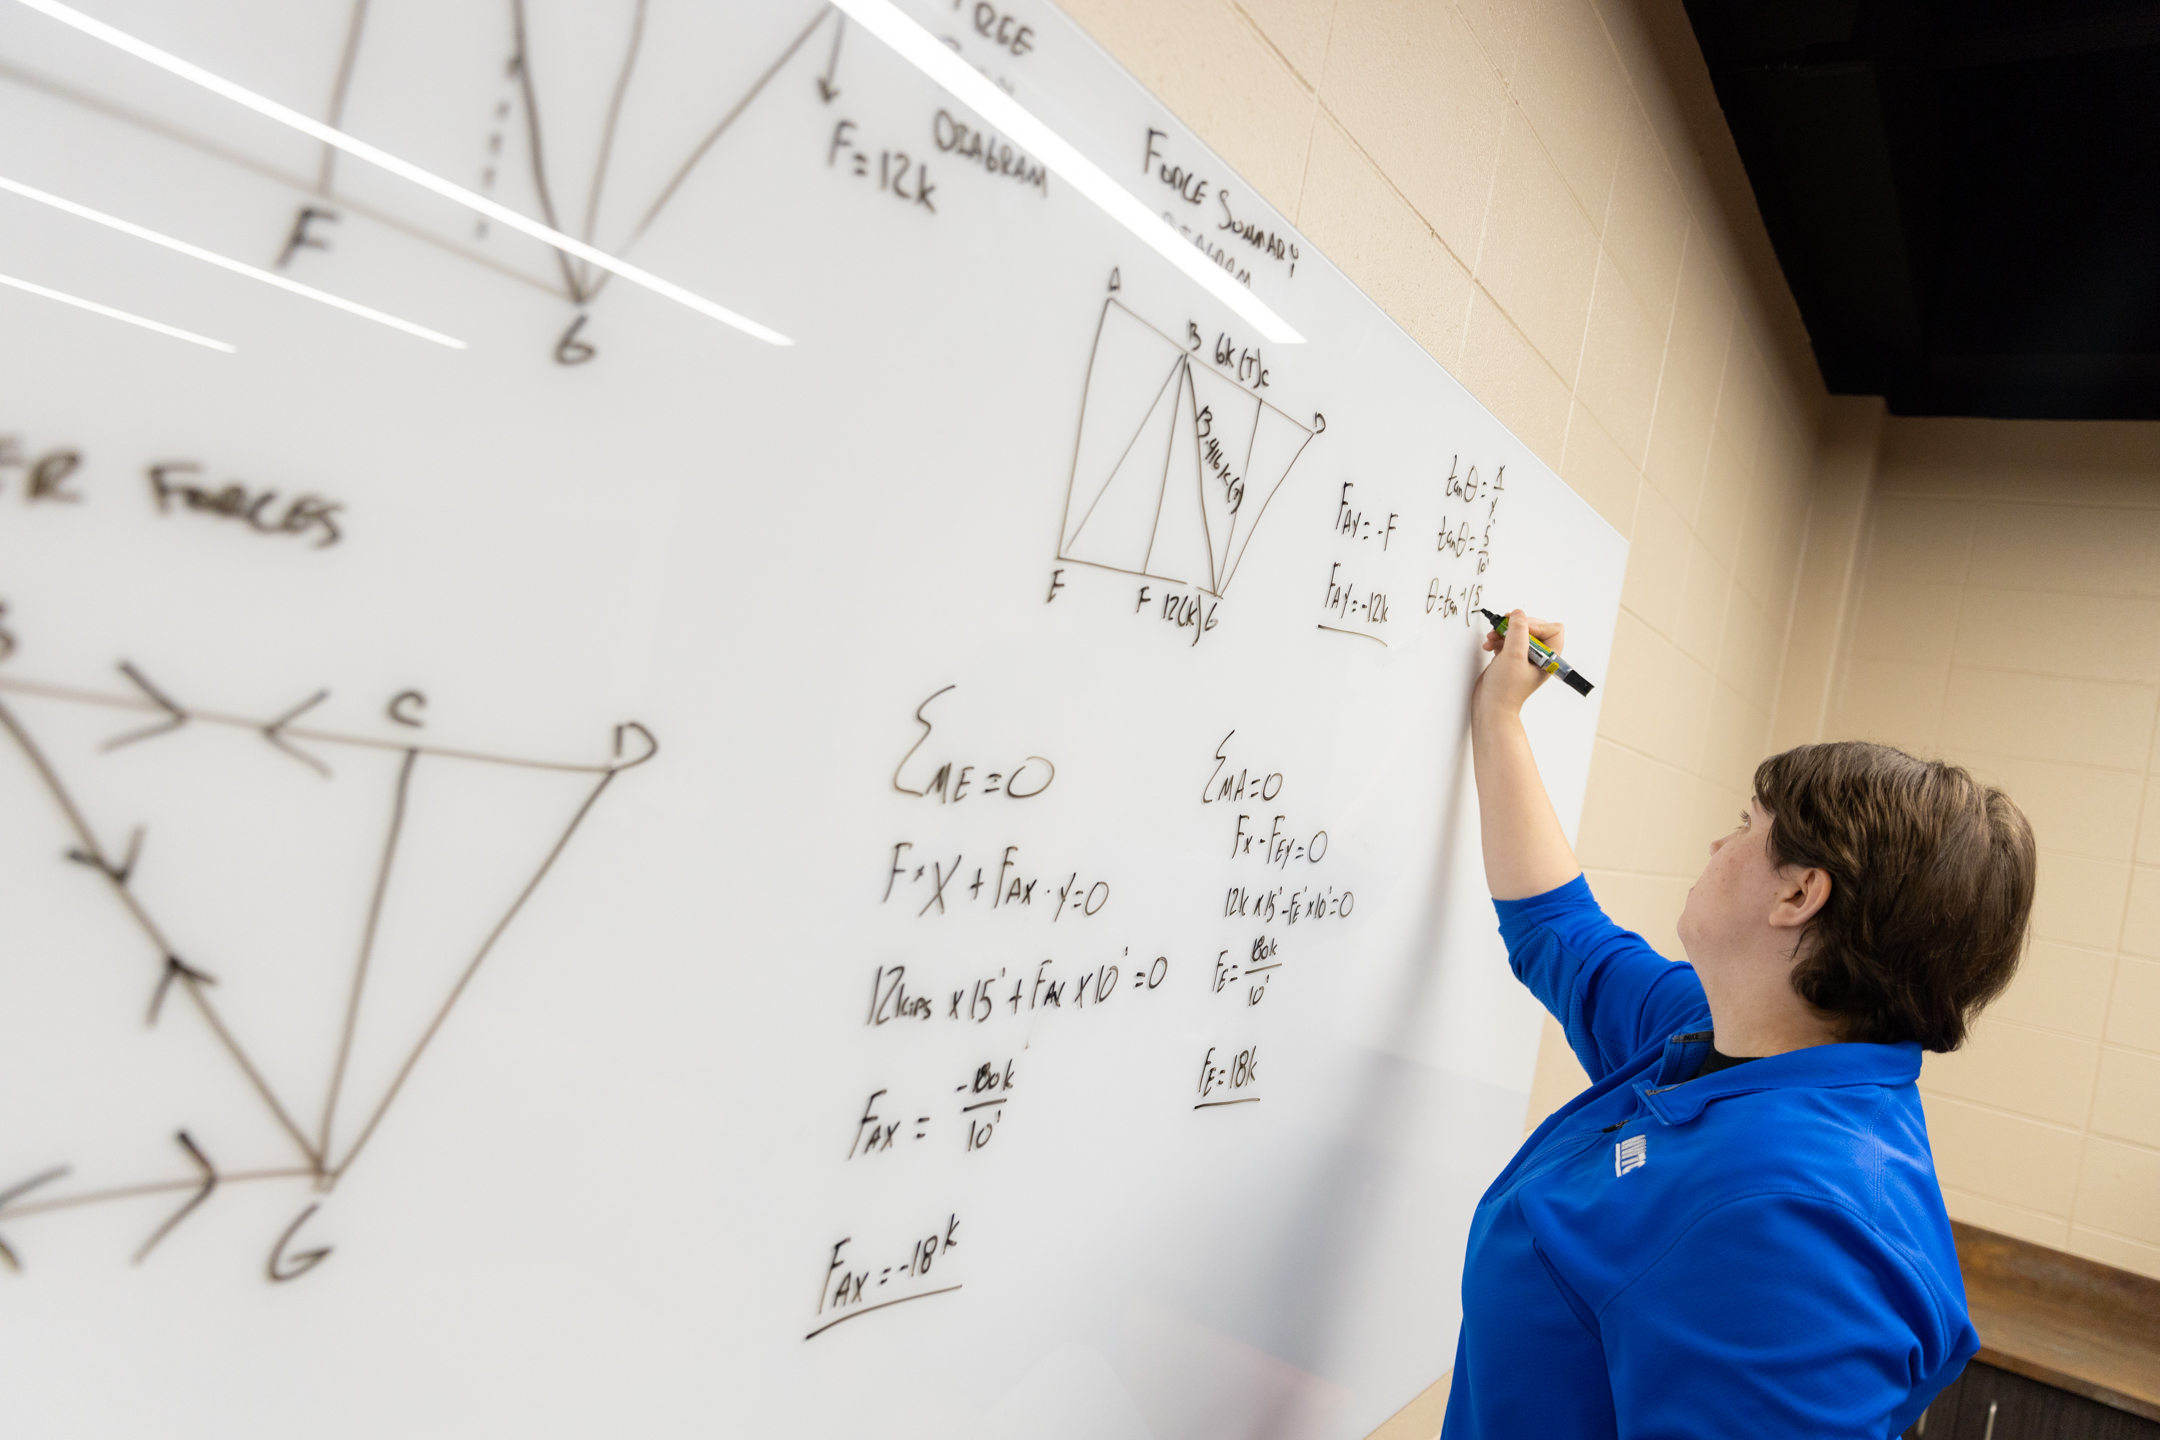 F
G
F=12k
DIAGRAM
FORCE SUMMARY
DIAGRAM
A
B 6k (T) C
D
E
F 12(k) G
FAY = -F
FAY = -12k
tanθ = x
y
tanθ = 5'
10'
θ = tan⁻¹ (5
FORCES
C
D
G
ΣME = 0
F·X + FAX · Y = 0
12kips x 15' + FAX x 10' = 0
FAX = -180k
10'
FAX = -18k
ΣMA = 0
Fx - FEY = 0
12k x 15' - FE x 10' = 0
FE = 180k
10'
FE = 18k